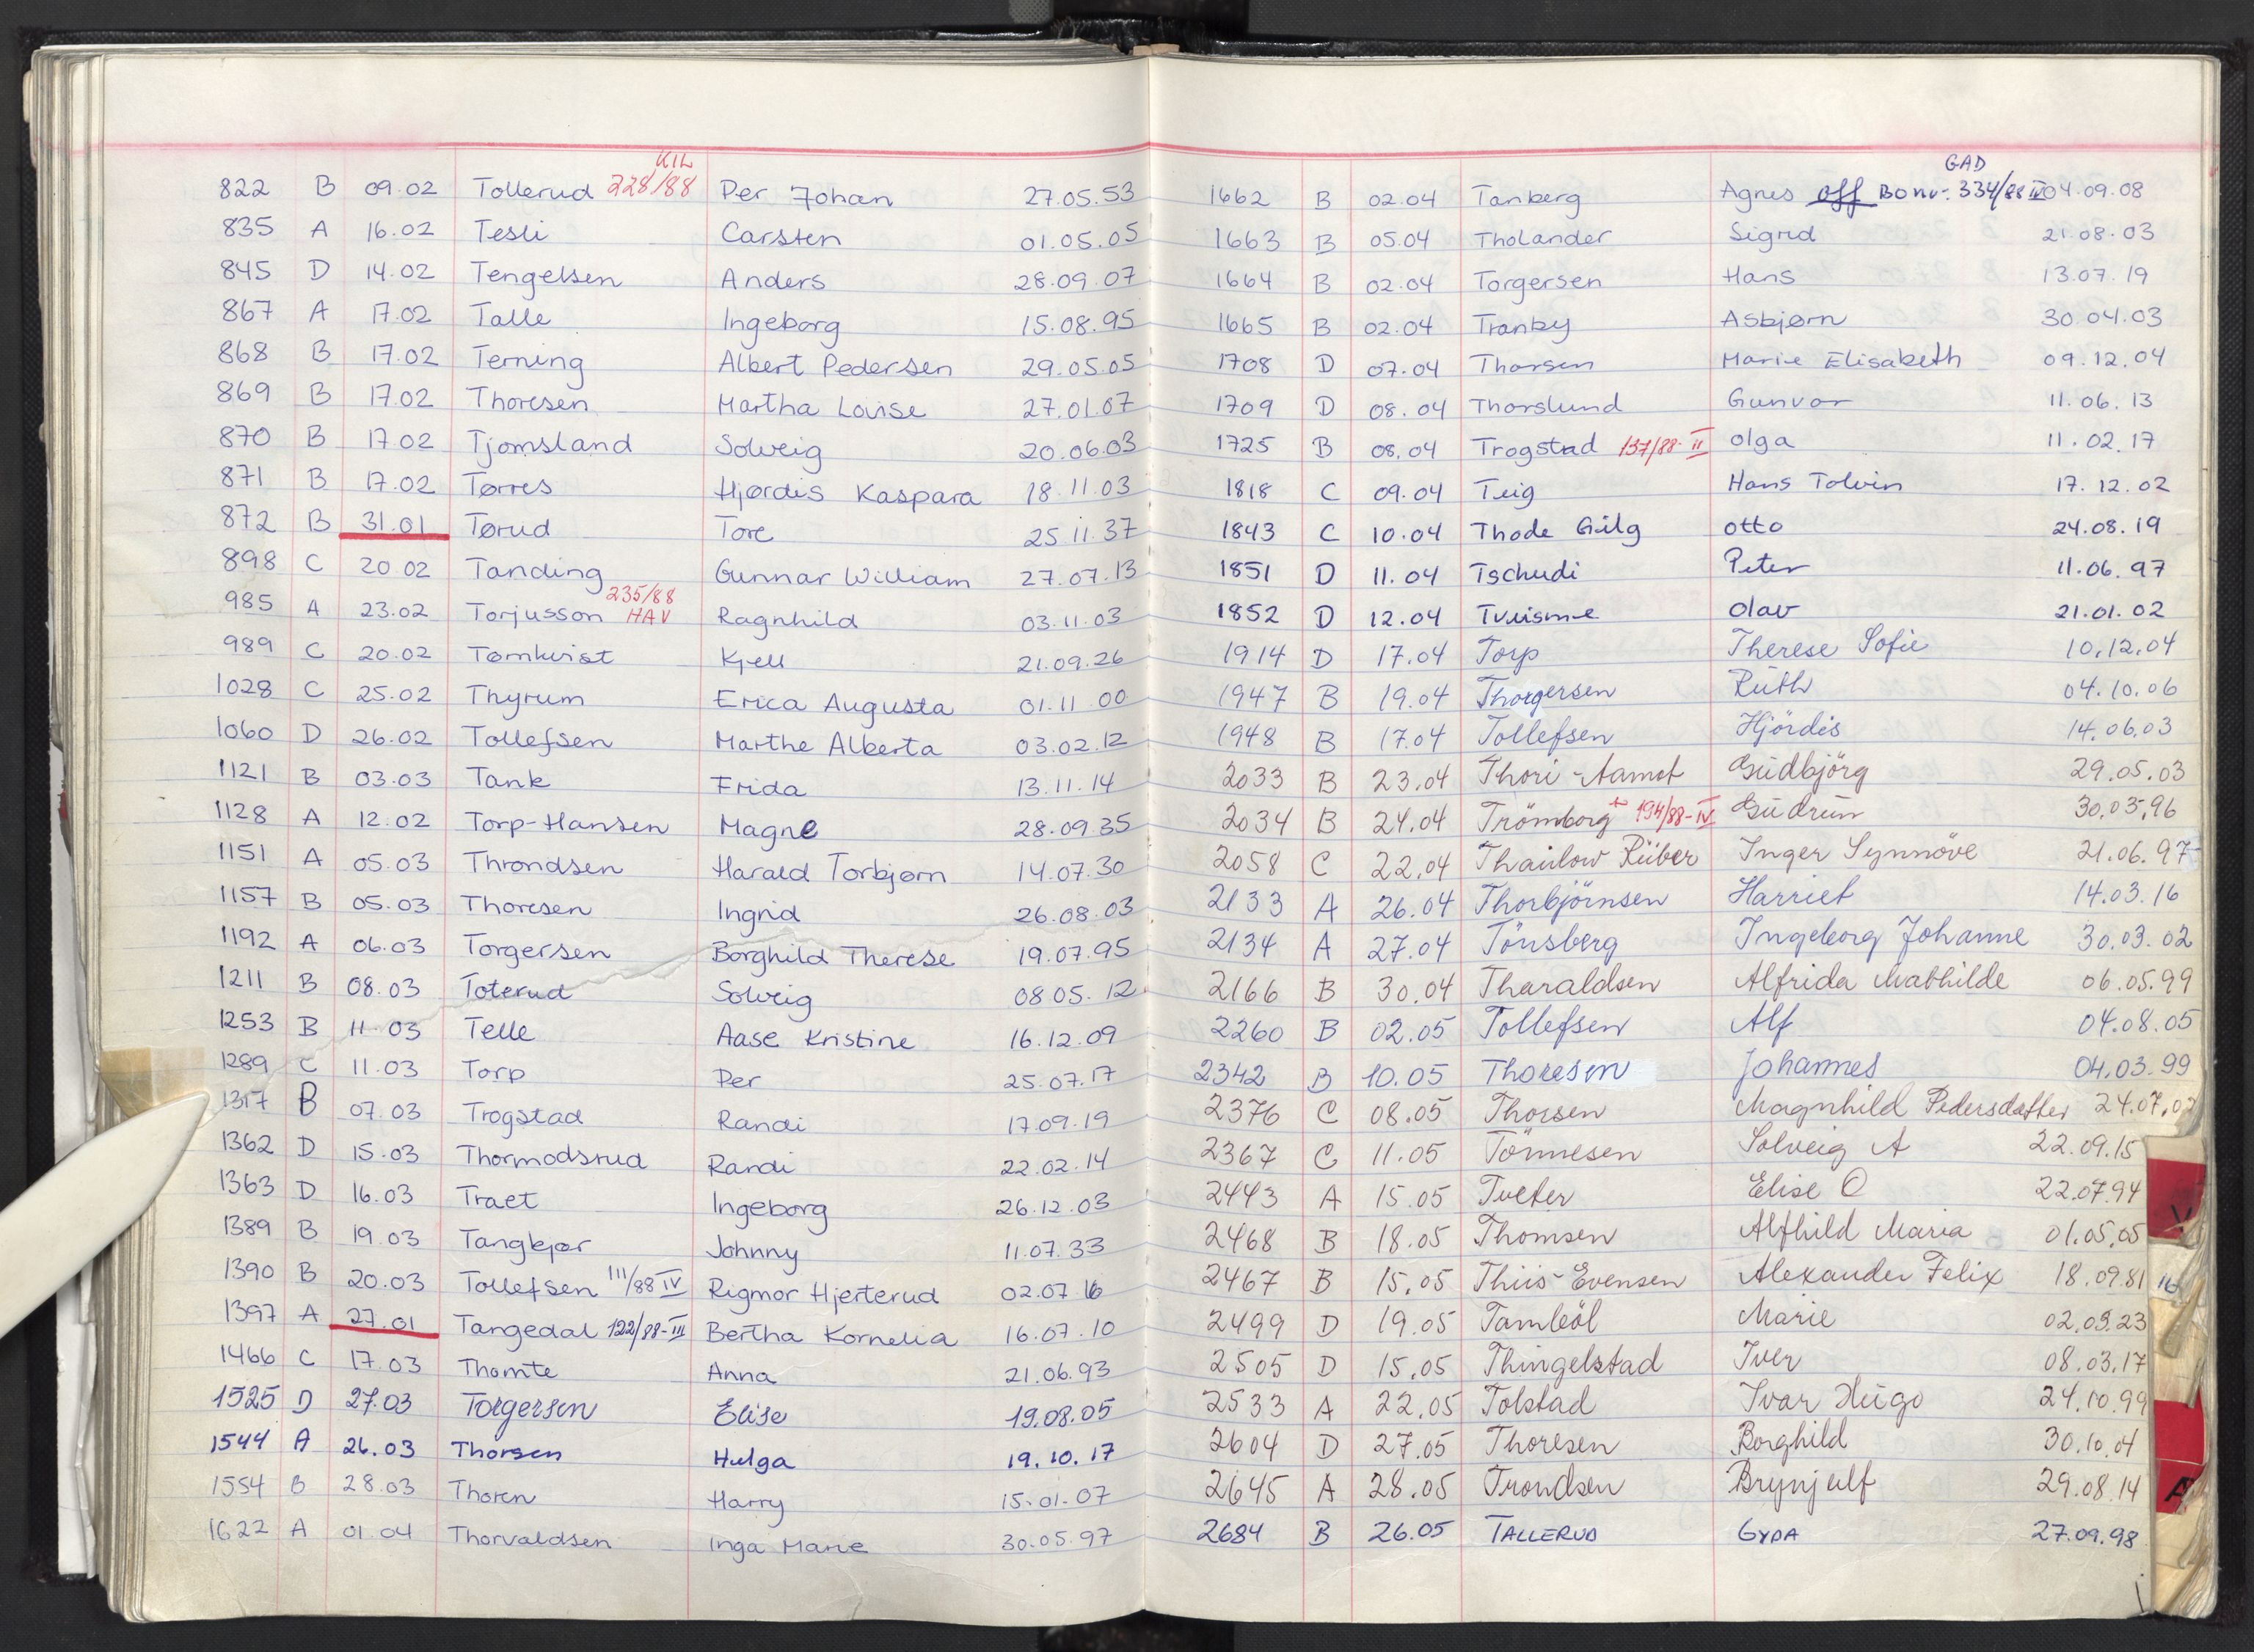 KIL
822 B 09.02 Tollerud 228/88 Per Johan 27.05.53
835 A 16.02 Tesli Carsten 01.05.05
845 D 14.02 Tengelsen Anders 28.09.07
867 A 17.02 Talle Ingeborg 15.08.95
868 B 17.02 Terning Albert Pedersen 29.05.05
869 B 17.02 Thoresen Martha Lovise 27.01.07
870 B 17.02 Tjomsland Solveig 20.06.03
871 B 17.02 Tørres Hjørdis Kaspara 18.11.03
872 B 31.01 Tørud Tore 25.11.37
898 C 20.02 Tanding Gunnar William 27.07.13
235/88
985 A 23.02 Torjusson HAV Ragnhild 03.11.03
989 C 20.02 Tørnkvist Kjell 21.09.26
1028 C 25.02 Thyrum Erica Augusta 01.11.00
1060 D 26.02 Tollefsen Marthe Alberta 03.02.12
1121 B 03.03 Tank Frida 13.11.14
1128 A 12.02 Torp-Hansen Magne 28.09.35
1151 A 05.03 Throndsen Harald Torbjørn 14.07.30
1157 B 05.03 Thoresen Ingrid 26.08.03
1192 A 06.03 Torgersen Borghild Therese 19.07.95
1211 B 08.03 Toterud Solveig 08.05.12
1253 B 11.03 Telle Aase Kristine 16.12.09
1289 C 11.03 Torp Per 25.07.17
1317 B 07.03 Trogstad Randi 17.09.19
1362 D 15.03 Thormodsrud Randi 22.02.14
1363 D 16.03 Traet Ingeborg 26.12.03
1389 B 19.03 Tangkjær Johnny 11.07.33
1390 B 20.03 Tollefsen 111/88 IV Rigmor Hjerterud 02.07.16
1397 A 27.01 Tangedal 122/88-III Bertha Kornelia 16.07.10
1466 C 17.03 Thomte Anna 21.06.93
1525 D 27.03 Torgersen Elise 19.08.05
1544 A 26.03 Thorsen Helga 19.10.17
1554 B 28.03 Thoren Harry 15.01.07
1622 A 01.04 Thorvaldsen Inga Marie 30.05.97
GAD
1662 B 02.04 Tanberg Agnes off Bonr. 334/88 IV 04.09.08
1663 B 05.04 Tholander Sigrid 21.08.03
1664 B 02.04 Torgersen Hans 13.07.19
1665 B 02.04 Tranby Asbjørn 30.04.03
1708 D 07.04 Thorsen Marie Elisabeth 09.12.04
1709 D 08.04 Thorslund Gunvor 11.06.13
1725 B 08.04 Trogstad 137/88-II Olga 11.02.17
1818 C 09.04 Teig Hans Tolvin 17.12.02
1843 C 10.04 Thode Gilg Otto 24.08.19
1851 D 11.04 Tschudi Peter 11.06.97
1852 D 12.04 Tveisme Olav 21.01.02
1914 D 17.04 Torp Therese Sofie 10.12.04
1947 B 19.04 Thorgersen Ruth 04.10.06
1948 B 17.04 Tollefsen Hjördis 14.06.03
2033 B 23.04 Thori-Aamot Gudbjörg 29.05.03
2034 B 24.04 Trömborg 194/88-IV Gudrun 30.03.96
2058 C 22.04 Thaulow Rüber Inger Synnöve 21.06.97
2133 A 26.04 Thorbjörnsen Harriet 14.03.16
2134 A 27.04 Tönsberg Ingeborg Johanne 30.03.02
2166 B 30.04 Tharaldsen Alfrida Mathilde 06.05.99
2260 B 02.05 Tollefsen Alf 04.08.05
2342 B 10.05 Thoresen Johannes 04.03.99
2376 C 08.05 Thorsen Magnhild Pedersdatter 24.07.02
2367 C 11.05 Tönnesen Solveig A 22.09.15
2443 A 15.05 Tveter Elise O 22.07.94
2468 B 18.05 Thomsen Alfhild Maria 01.05.05
2467 B 15.05 Thiis-Evensen Alexander Felix 18.09.81 16
2499 D 19.05 Tamböl Marie 02.09.23
2505 D 15.05 Thingelstad Iver 08.03.17
2533 A 22.05 Tolstad Ivar Hugo 24.10.99
2604 D 27.05 Thoresen Borghild 30.10.04
2645 A 28.05 Trondsen Brynjulf 29.08.14
2684 B 26.05 TALLERUD GYDA 27.09.98
V
A